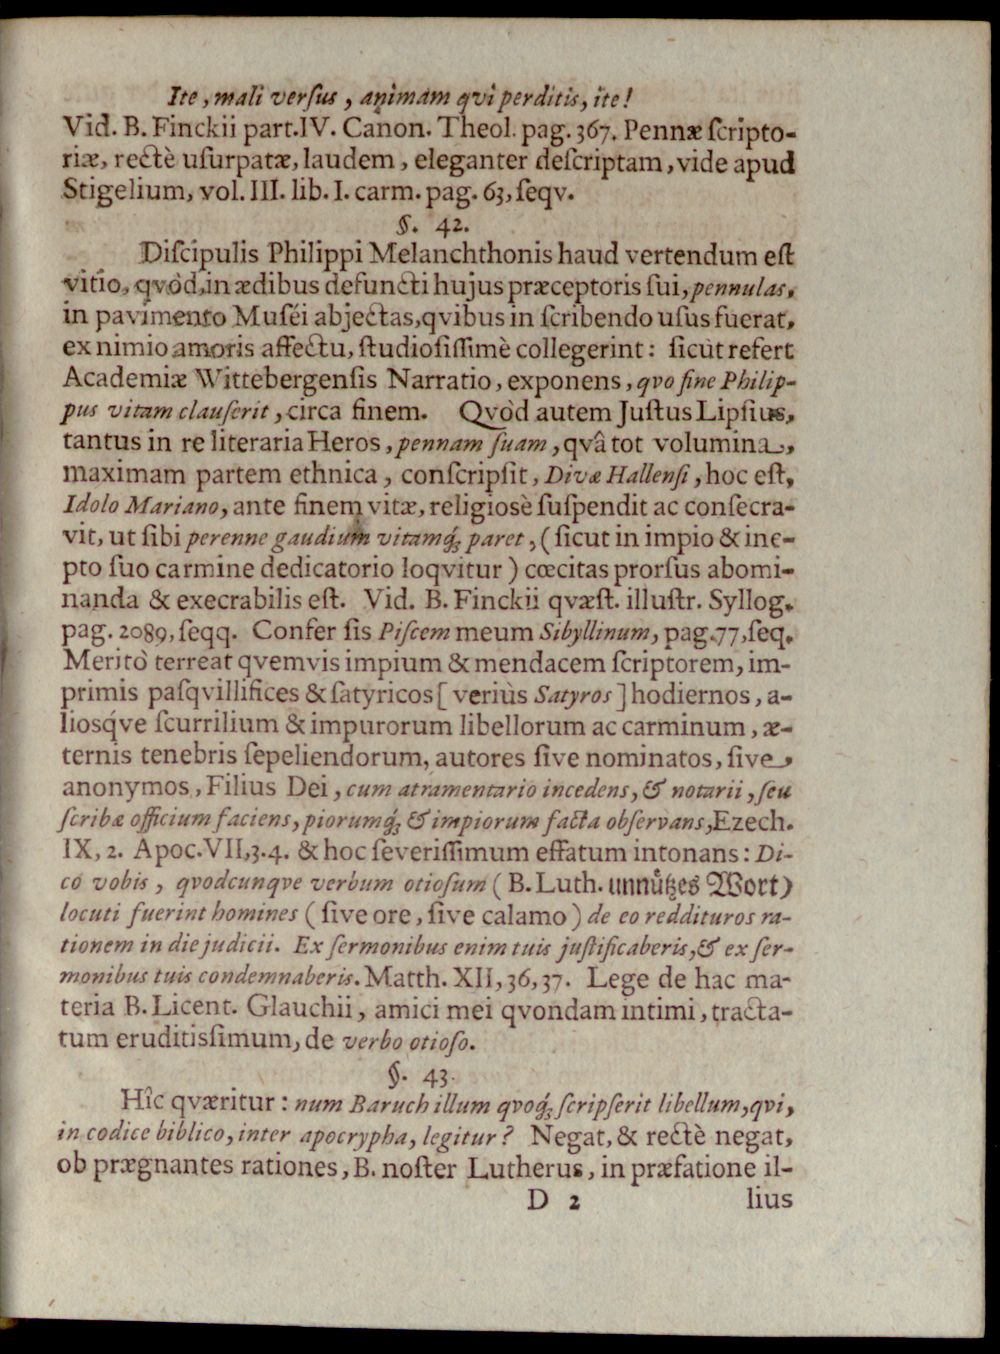 Ite, mali verſus, animam qvi perditis, ite!
Vid. B. Finckii part.IV. Canon. Theol. pag. 367. Pennæ ſcripto-
riæ, rectè uſurpatæ, laudem, eleganter deſcriptam, vide apud
Stigelium, vol. III. lib. I. carm. pag. 63, ſeqv.
§. 42.
Diſcipulis Philippi Melanchthonis haud vertendum eſt
vitio, qvòd, in ædibus defuncti hujus præceptoris ſui, pennulas,
in pavimento Muſéi abjectas, qvibus in ſcribendo uſus fuerat,
ex nimio amoris affectu, ſtudioſiſſimè collegerint: ſicut refert
Academiæ Wittebergenſis Narratio, exponens, qvo fine Philip-
pus vitam clauſerit, circa finem. Qvòd autem Juſtus Lipſius,
tantus in re literaria Heros, pennam ſuam, qvâ tot volumina,
maximam partem ethnica, conſcripſit, Divæ Hallenſi, hoc eſt,
Idolo Mariano, ante finem vitæ, religiosè ſuſpendit ac conſecra-
vit, ut ſibi perenne gaudium vitamq́ꝫ paret, (ſicut in impio & ine-
pto ſuo carmine dedicatorio loqvitur) cœcitas prorſus abomi-
nanda & execrabilis eſt. Vid. B. Finckii qvæſt. illuſtr. Syllog.
pag. 2089, ſeqq. Confer ſis Piſcem meum Sibyllinum, pag. 77, ſeq.
Meritò terreat qvemvis impium & mendacem ſcriptorem, im-
primis paſqvillifices & ſatyricos [veriùs Satyros] hodiernos, a-
lioſq́ve ſcurrilium & impurorum libellorum ac carminum, æ-
ternis tenebris ſepeliendorum, autores ſive nominatos, ſive
anonymos, Filius Dei, cum atramentario incedens, & notarii, ſeu
ſcribæ officium faciens, piorumq́ꝫ & impiorum facta obſervans, Ezech.
IX, 2. Apoc. VII, 3. 4. & hoc ſeveriſſimum effatum intonans: Di-
co vobis, qvodcunqve verbum otioſum (B. Luth. unnuͤtzes Wort)
locuti fuerint homines (ſive ore, ſive calamo) de eo reddituros ra-
tionem in die judicii. Ex ſermonibus enim tuis juſtificaberis, & ex ſer-
monibus tuis condemnaberis. Matth. XII, 36, 37. Lege de hac ma-
teria B. Licent. Glauchii, amici mei qvondam intimi, tracta-
tum eruditisſimum, de verbo otioſo.
§. 43.
Hîc qværitur: num Baruch illum qvoq́ꝫ ſcripſerit libellum, qvi,
in codice biblico, inter apocrypha, legitur? Negat, & rectè negat,
ob prægnantes rationes, B. noſter Lutherus, in præfatione il-
D 2 lius